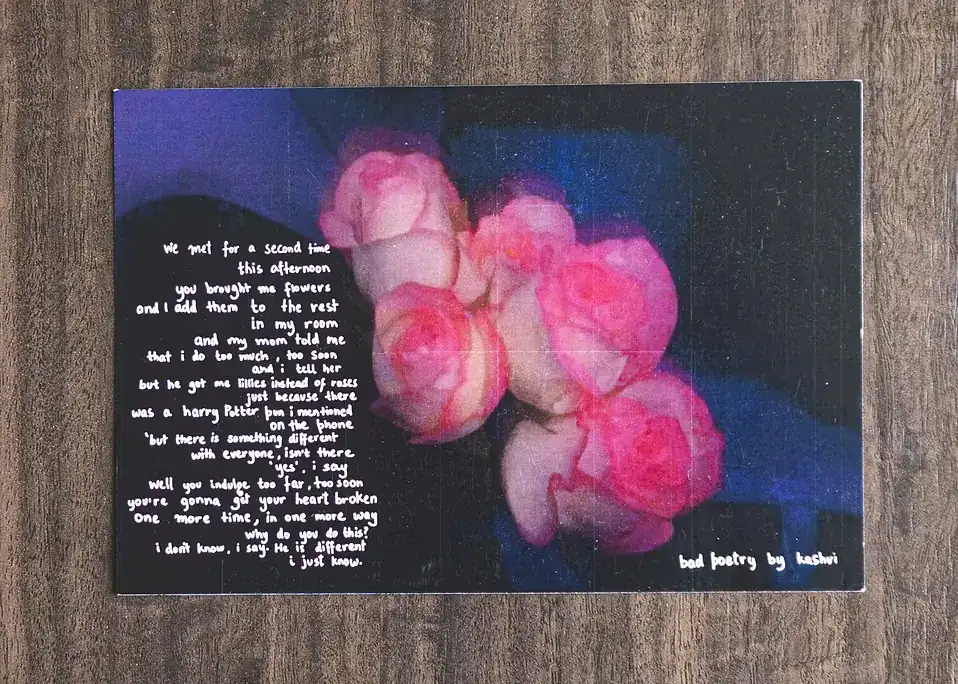 we met for a second time
this afternoon
you brought me flowers
and I add them to the rest
in my room
and my mom told me
that i do too much, too soon
and i tell her
but he got me lillies instead of roses
just because there
was a harry Potter pun i mentioned
on the phone
'but there is something different
with everyone, isn't there
'yes'. i say
Well you indulge too far, too soon
you're gonna get your heart broken
One more time, in one more way
why do you do this?
i don't know. i say. He is different
i just know.
bad poetry by kashvi